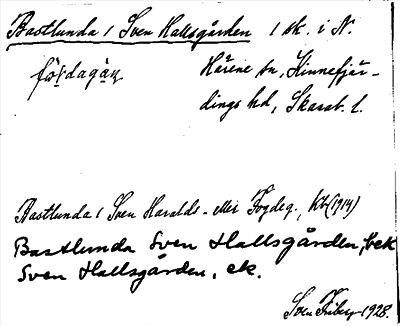 Bastlunda 1 Sven Hallsgården 1 sk. i N.
Härene sn, Kinnefjär-
dings hd, Skarab. l.
Bastlunda 1 Sven Haralds- Fogdeg., kb (1914)
Bastlunda Sven Hallsgården, bek
Sven Hallsgården, ek.
Sven 1928.